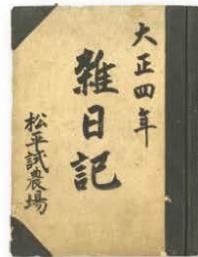 大正四年
雑日記
松平試農場